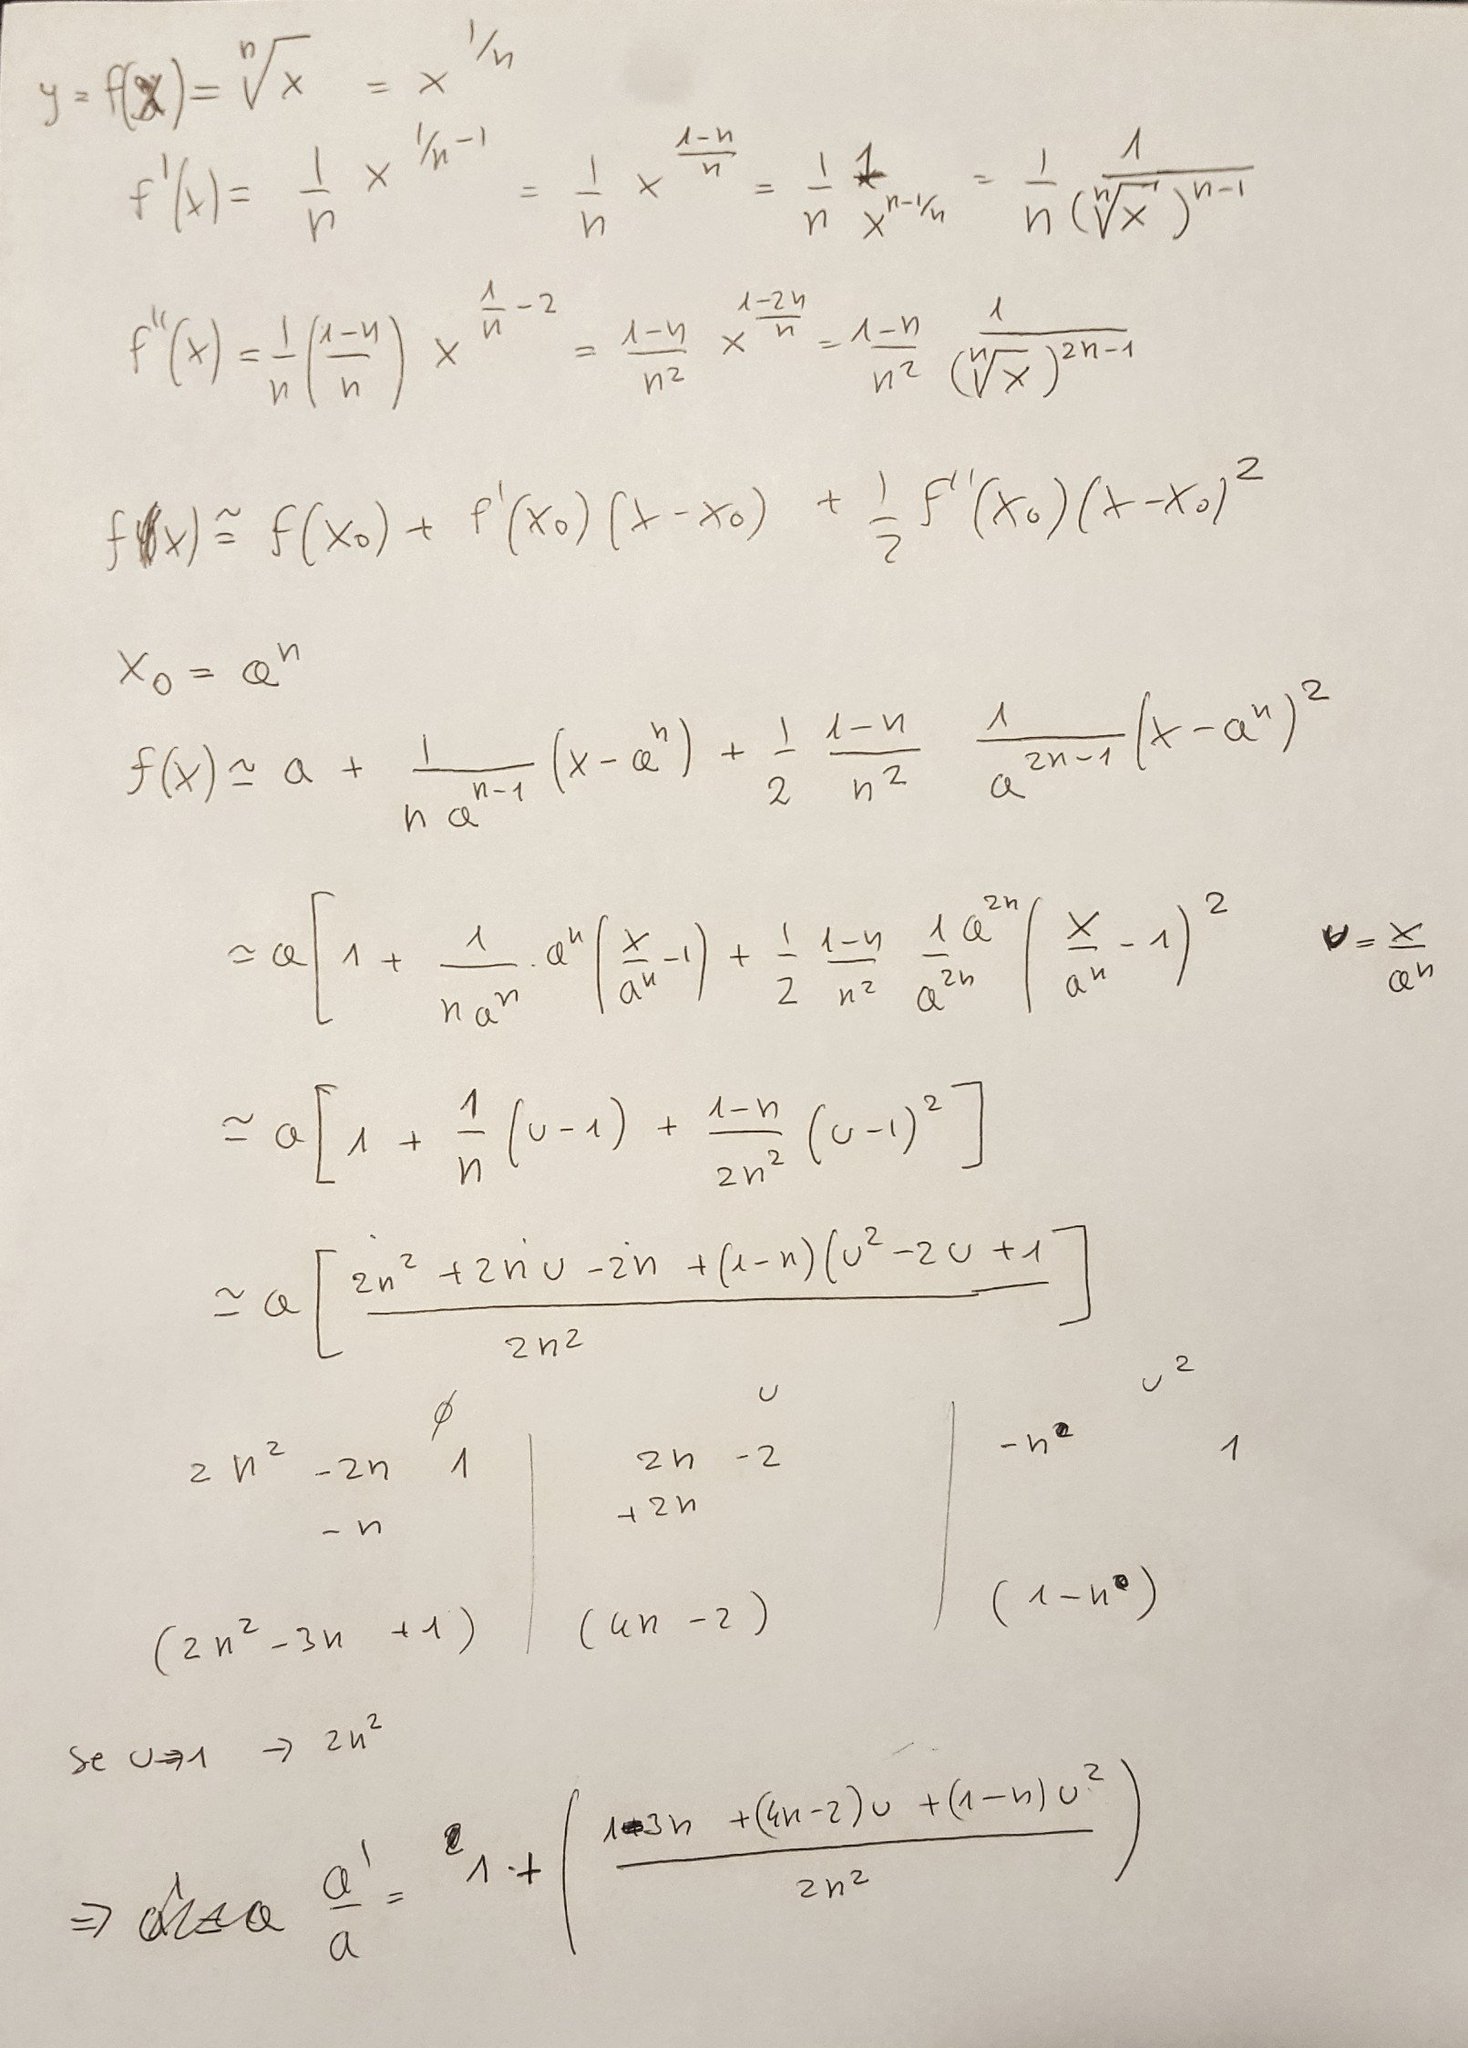 y = f(x) = ⁿ√x = x^{1/n}
f'(x) = 1/n x^{1/n-1} = 1/n x^{(1-n)/n} = 1/n 1/x^{n-1/n} = 1/n 1/(ⁿ√x)^{n-1}
f''(x) = 1/n ((1-n)/n) x^{1/n - 2} = (1-n)/n² x^{(1-2n)/n} = (1-n)/n² 1/(ⁿ√x)^{2n-1}
f(x) ≅ f(x₀) + f'(x₀)(x-x₀) + 1/2 f''(x₀)(x-x₀)²
x₀ = aⁿ
f(x) ≃ a + 1/(n a^{n-1}) (x-aⁿ) + 1/2 (1-n)/n² 1/a^{2n-1} (x-aⁿ)²
≃ a[1 + 1/(n aⁿ) · aⁿ (x/aⁿ - 1) + 1/2 (1-n)/n² 1 a^{2n}/a^{2n} (x/aⁿ - 1)² u = x/aⁿ
≃ a[1 + 1/n (u-1) + (1-n)/2n² (u-1)²]
≃ a[(2n² + 2nu - 2n + (1-n)(u² - 2u + 1)/2n²]
∅ u u²
2n² -2n 1 | 2n -2 | -n 1
-n +2n
(2n² -3n +1) (4n -2) (1-n)
se u→1 → 2n²
⇒ a'/a = 1 + ((1-3n + (4n-2)u + (1-n)u²)/2n²)